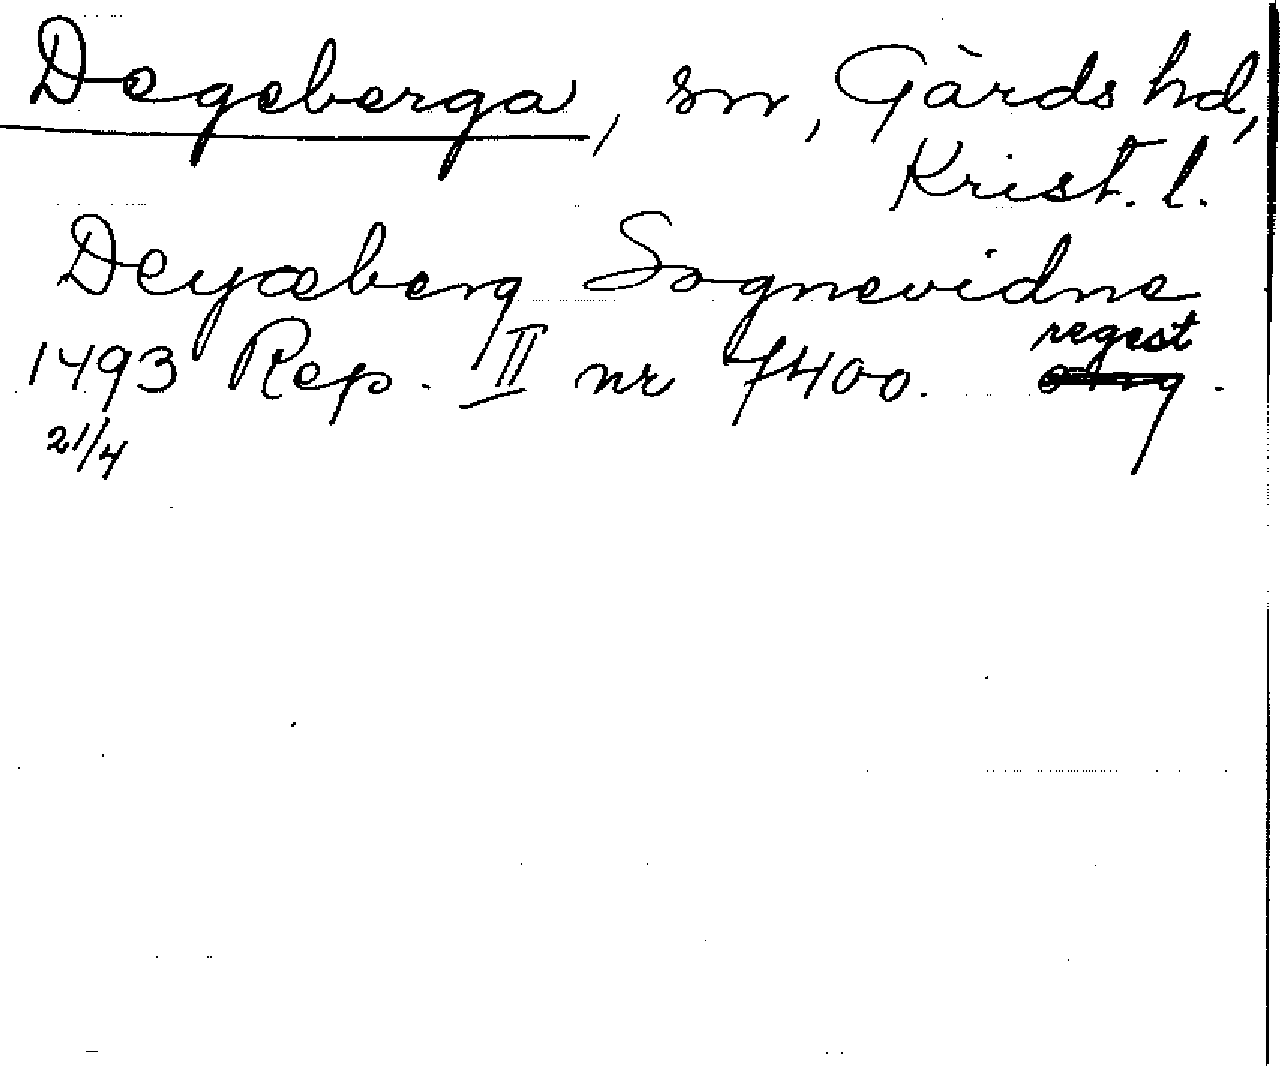 Degeberga, sn, Gärds hd,
Krist. l.
Deyæberg Sognevidne
1493 Rep. II nr 7400. regest.
21/4